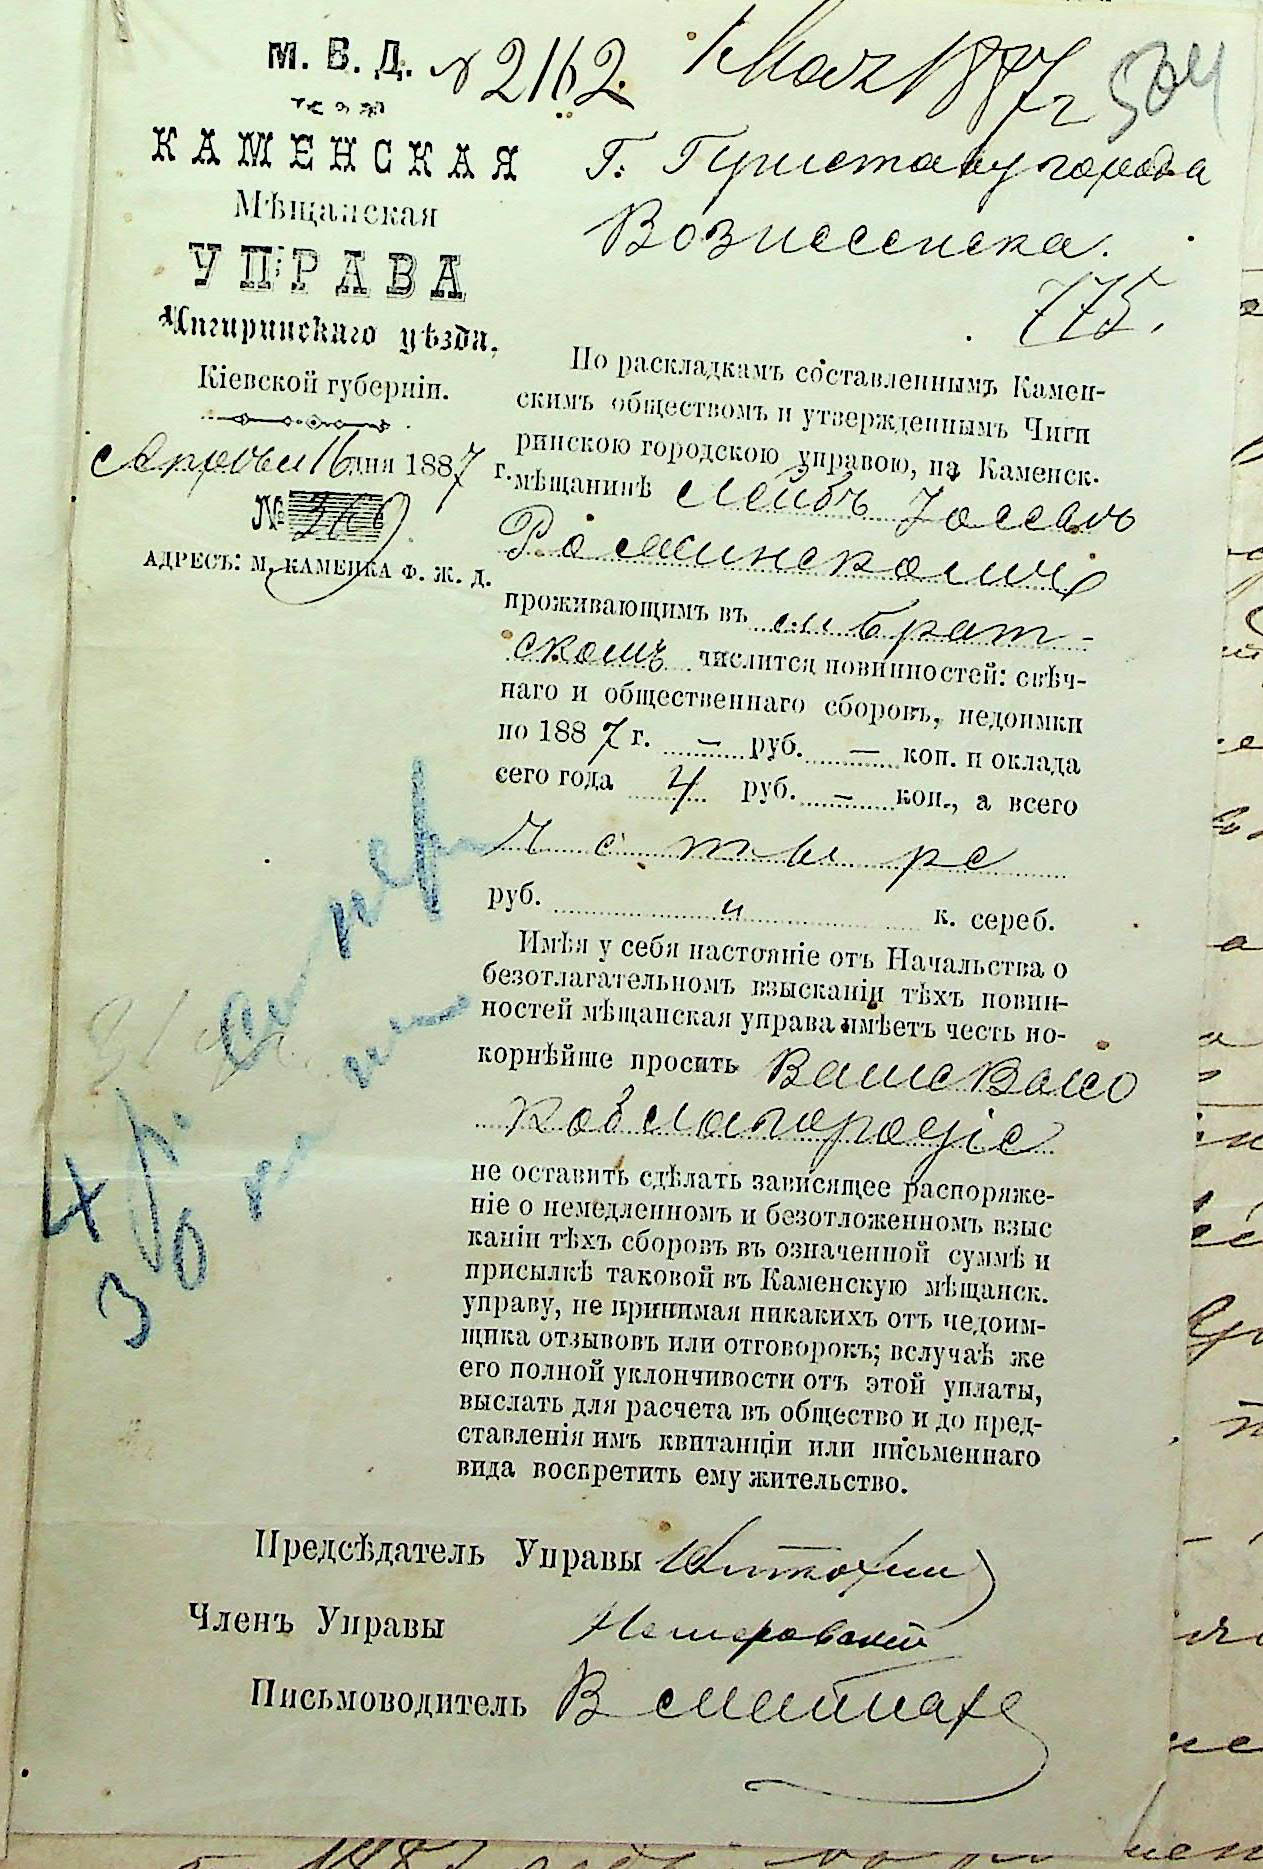 М. В. Д. № 2162. 1 Мая 1887 г 504
КАМЕНСКАЯ
Мѣщанская
УПРАВА
Чигиринскаго уѣзда,
Кіевской губерніи.
Апрѣля 16 дня 1887 г.
№ 369
АДРЕСЪ: М. КАМЕНКА Ф. Ж. Д.
Г. Приставу города
Вознесенска.
775.
По раскладкамъ составленнымъ Камен-
скимъ обществомъ и утвержденнымъ Чиги
ринскою городскою управою, на Каменск.
мѣщанинѣ Лейбѣ
проживающимъ въ брат-
скомъ числится повинностей: свѣч-
наго и общественнаго сборовъ, недоимки
по 1887 г. — руб. — коп. и оклада
сего года 4 руб. — коп., а всего
Четыре
руб. и к. сереб.
Имѣя у себя настояніе отъ Начальства о
безотлагательномъ взысканіи тѣхъ повин-
ностей мѣщанская управа имѣетъ честь по-
корнѣйше просить Ваше Высо
коблагородіе
не оставить сдѣлать зависящее распоряже-
ніе о немедленномъ и безотложенномъ взыс
каніи тѣхъ сборовъ въ означенной суммѣ и
присылкѣ таковой въ Каменскую мѣщанск.
управу, не принимая никакихъ отъ недоим-
щика отзывовъ или отговорокъ; вслучаѣ же
его полной уклончивости отъ этой уплаты,
выслать для расчета въ общество и до пред-
ставленія имъ квитанціи или письменнаго
вида воспретить ему жительство.
4 р.
30
Предсѣдатель Управы
Членъ Управы
Письмоводитель